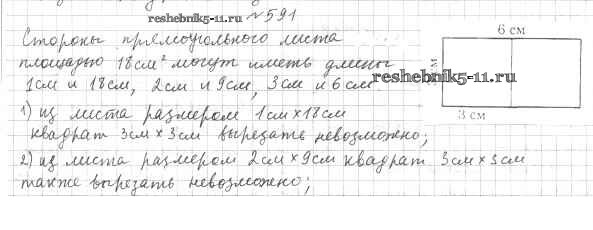 reshebnik5-11.ru
№591
Стороны прямоугольного листа
площадью 18см² могут иметь длины
1см и 18см, 2см и 9см, 3см и 6см
1) из листа размером 1см×18см
квадрат 3см×3см вырезать невозможно;
2) из листа размером 2см×9см квадрат 3см×3см
также вырезать невозможно;
6 см
reshebnik5-11.ru
3 см